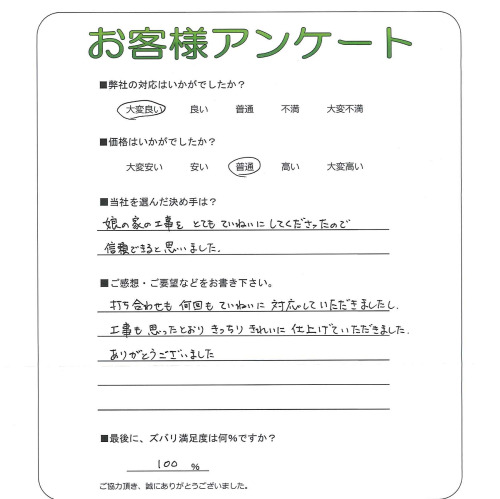 お客様アンケート
■弊社の対応はいかがでしたか？
大変良い 良い 普通 不満 大変不満
■価格はいかがでしたか？
大変安い 安い 普通 高い 大変高い
■当社を選んだ決め手は？
娘の家の工事を とても ていねいに してくださったので
信頼できると思いました.
■ご感想・ご要望などをお書き下さい。
打ち合わせも 何回も ていねいに 対応していただきましたし.
工事も 思ったとおり きっちり きれいに 仕上げていただきました.
ありがとうございました
■最後に、ズバリ満足度は何%ですか？
100 %
ご協力頂き、誠にありがとうございました。